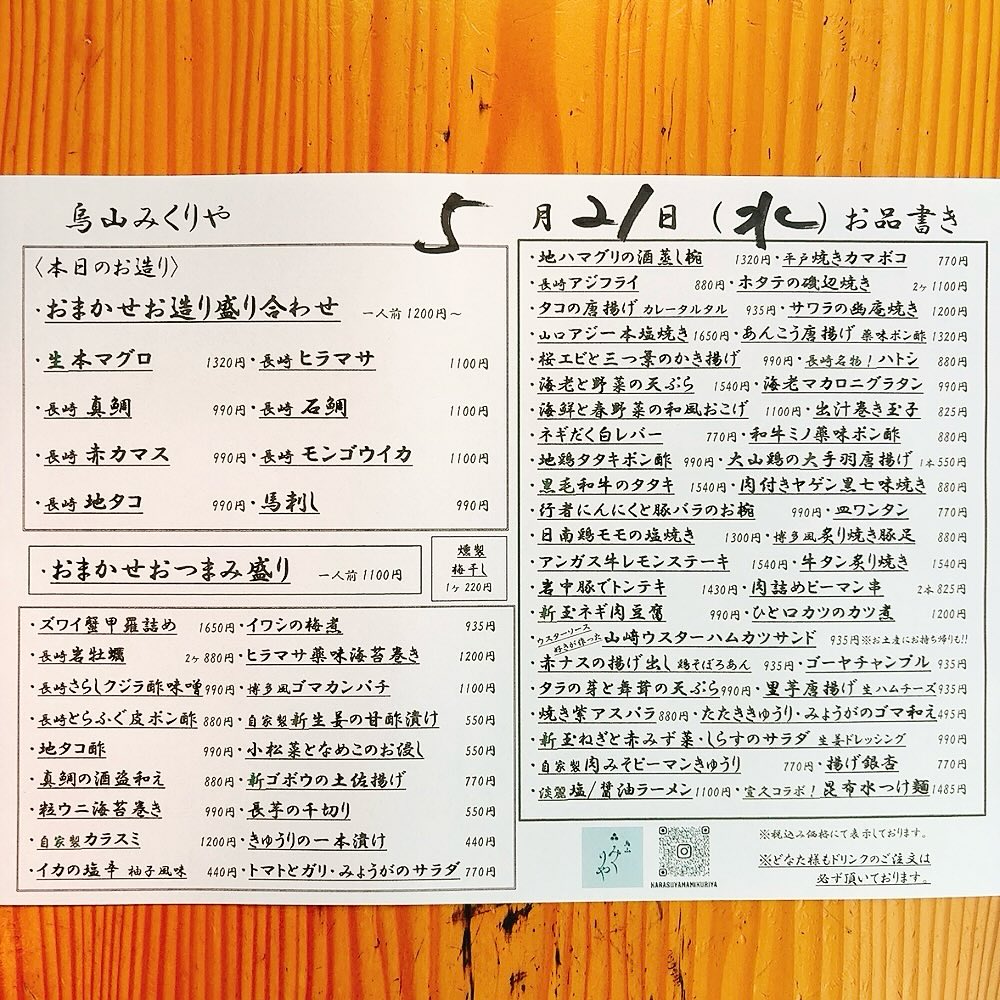 烏山みくりや 5月21日(水)お品書き
〈本日のお造り〉
・おまかせお造り盛り合わせ 一人前1200円～
・生本マグロ 1320円・長崎ヒラマサ 1100円
・長崎 真鯛 990円・長崎 石鯛 1100円
・長崎 赤カマス 990円・長崎 モンゴウイカ 1100円
・長崎 地タコ 990円・馬刺し 990円
・おまかせおつまみ盛り 一人前1100円
燻製
梅干し
1ヶ220円
・ズワイ蟹甲羅詰め 1650円・イワシの梅煮 935円
・長崎岩牡蠣 2ヶ880円・ヒラマサ薬味海苔巻き 1200円
・長崎さらしクジラ酢味噌990円・博多風ゴマカンパチ 1100円
・長崎とらふぐ皮ポン酢 880円・自家製新生姜の甘酢漬け 550円
・地タコ酢 990円・小松菜となめこのお浸し 550円
・真鯛の酒盗和え 880円・新ゴボウの土佐揚げ 770円
・粒ウニ海苔巻き 990円・長芋の千切り 550円
・自家製カラスミ 1200円・きゅうりの一本漬け 440円
・イカの塩辛 柚子風味 440円・トマトとガリ・みょうがのサラダ 770円
・地ハマグリの酒蒸し椀 1320円・平戸焼きカマボコ 770円
・長崎アジフライ 880円・ホタテの磯辺焼き 2ヶ1100円
・タコの唐揚げ カレータルタル 935円・サワラの幽庵焼き 1200円
・山口アジ一本塩焼き1650円・あんこう唐揚げ 薬味ポン酢 1320円
・桜エビと三つ葉のかき揚げ 990円・長崎名物！ハトシ 880円
・海老と野菜の天ぷら 1540円・海老マカロニグラタン 990円
・海鮮と春野菜の和風おこげ 1100円・出汁巻き玉子 825円
・ネギだく白レバー 770円・和牛ミノ薬味ポン酢 880円
・地鶏タタキポン酢 990円・大山鶏の大手羽唐揚げ 1本550円
・黒毛和牛のタタキ 1540円・肉付きヤゲン黒七味焼き 880円
・行者にんにくと豚バラのお椀 990円・皿ワンタン 770円
・日南鶏モモの塩焼き 1300円・博多風炙り焼き豚足 880円
・アンガス牛レモンステーキ 1540円・牛タン炙り焼き 1540円
・岩中豚でトンテキ 1430円・肉詰めピーマン串 2本825円
・新玉ネギ肉豆腐 990円・ひと口カツのカツ煮 1200円
・ウスターソース好きが作った山崎ウスターハムカツサンド 935円※お土産にお持ち帰りも!!
・赤ナスの揚げ出し 鶏そぼろあん 935円・ゴーヤチャンプル 935円
・タラの芽と舞茸の天ぷら990円・里芋唐揚げ 生ハムチーズ935円
・焼き紫アスパラ880円・たたききゅうり・みょうがのゴマ和え495円
・新玉ねぎと赤みず菜・しらすのサラダ 生姜ドレッシング 990円
・自家製肉みそピーマンきゅうり 770円・揚げ銀杏 770円
・淡麗塩/醤油ラーメン1100円・宣久コラボ！昆布水つけ麺1485円
烏山
みくりや
KARASUYAMAMIKURIYA
※税込み価格にて表示しております。
※どなた様もドリンクのご注文は
必ず頂いております。